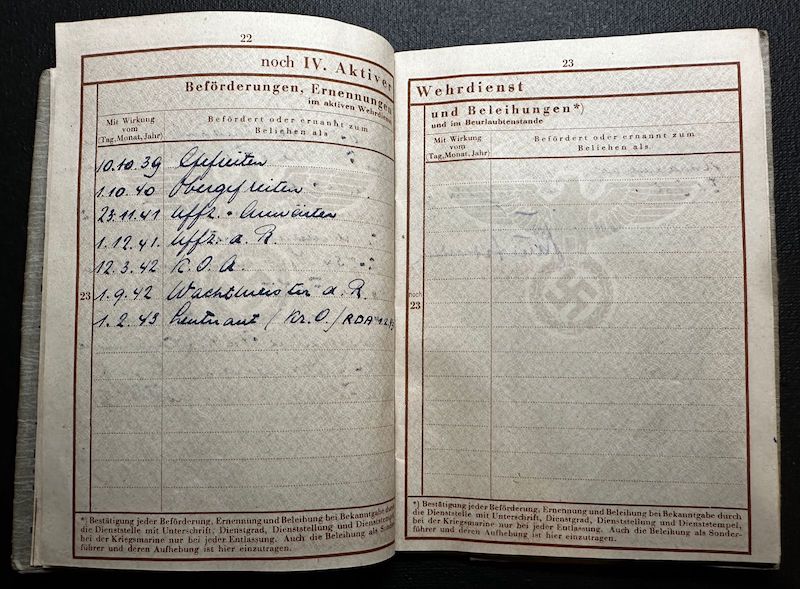 22
noch IV. Aktiver
Beförderungen, Ernennungen
im aktiven Wehrdienst
Mit Wirkung
vom
(Tag, Monat, Jahr)
Befördert oder ernannt zum
Beliehen als
10.10.39 Gefreiten
1.10.40 Obergefreiten
23.11.41 Uffz. Anwärter
1.12.41. Uffz. d. R.
12.3.42 K. O. A.
23
1.9.42 Wachtmeister d. R.
1.2.43 Leutnant / Kr. O. / RDA
*) Bestätigung jeder Beförderung, Ernennung und Beleihung bei Bekanntgabe durch
die Dienststelle mit Unterschrift, Dienstgrad, Dienststellung und Dienststempel,
bei der Kriegsmarine nur bei jeder Entlassung. Auch die Beleihung als Sonder-
führer und deren Aufhebung ist hier einzutragen.
23
Wehrdienst
und Beleihungen*)
und im Beurlaubtenstande
Mit Wirkung
vom
(Tag, Monat, Jahr)
Befördert oder ernannt zum
Beliehen als
noch
23
*) Bestätigung jeder Beförderung, Ernennung und Beleihung bei Bekanntgabe durch
die Dienststelle mit Unterschrift, Dienstgrad, Dienststellung und Dienststempel,
bei der Kriegsmarine nur bei jeder Entlassung. Auch die Beleihung als Sonder-
führer und deren Aufhebung ist hier einzutragen.